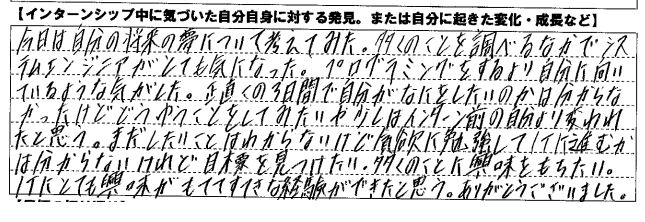 【インターンシップ中に気づいた自分自身に対する発見。または自分に起きた変化・成長など】
今日は自分の将来の夢について考えてみた。多くのことを調べるなかでシス
テムエンジニアがとても気になった。プログラミングをするより自分に向い
ているような気がした。正直この3日間で自分がなにをしたいのかは分からな
かったけどどうやうことをしてみたいや少しはインターン前の自分より変われ
たと思う。まだしたいことはわからないけど貪欲に勉強してITに進むか
は分からないけれど目標を見つけたい。多くのことに興味をもちたい。
ITにとても興味がもててすてきな経験ができたと思う。ありがとうございました。